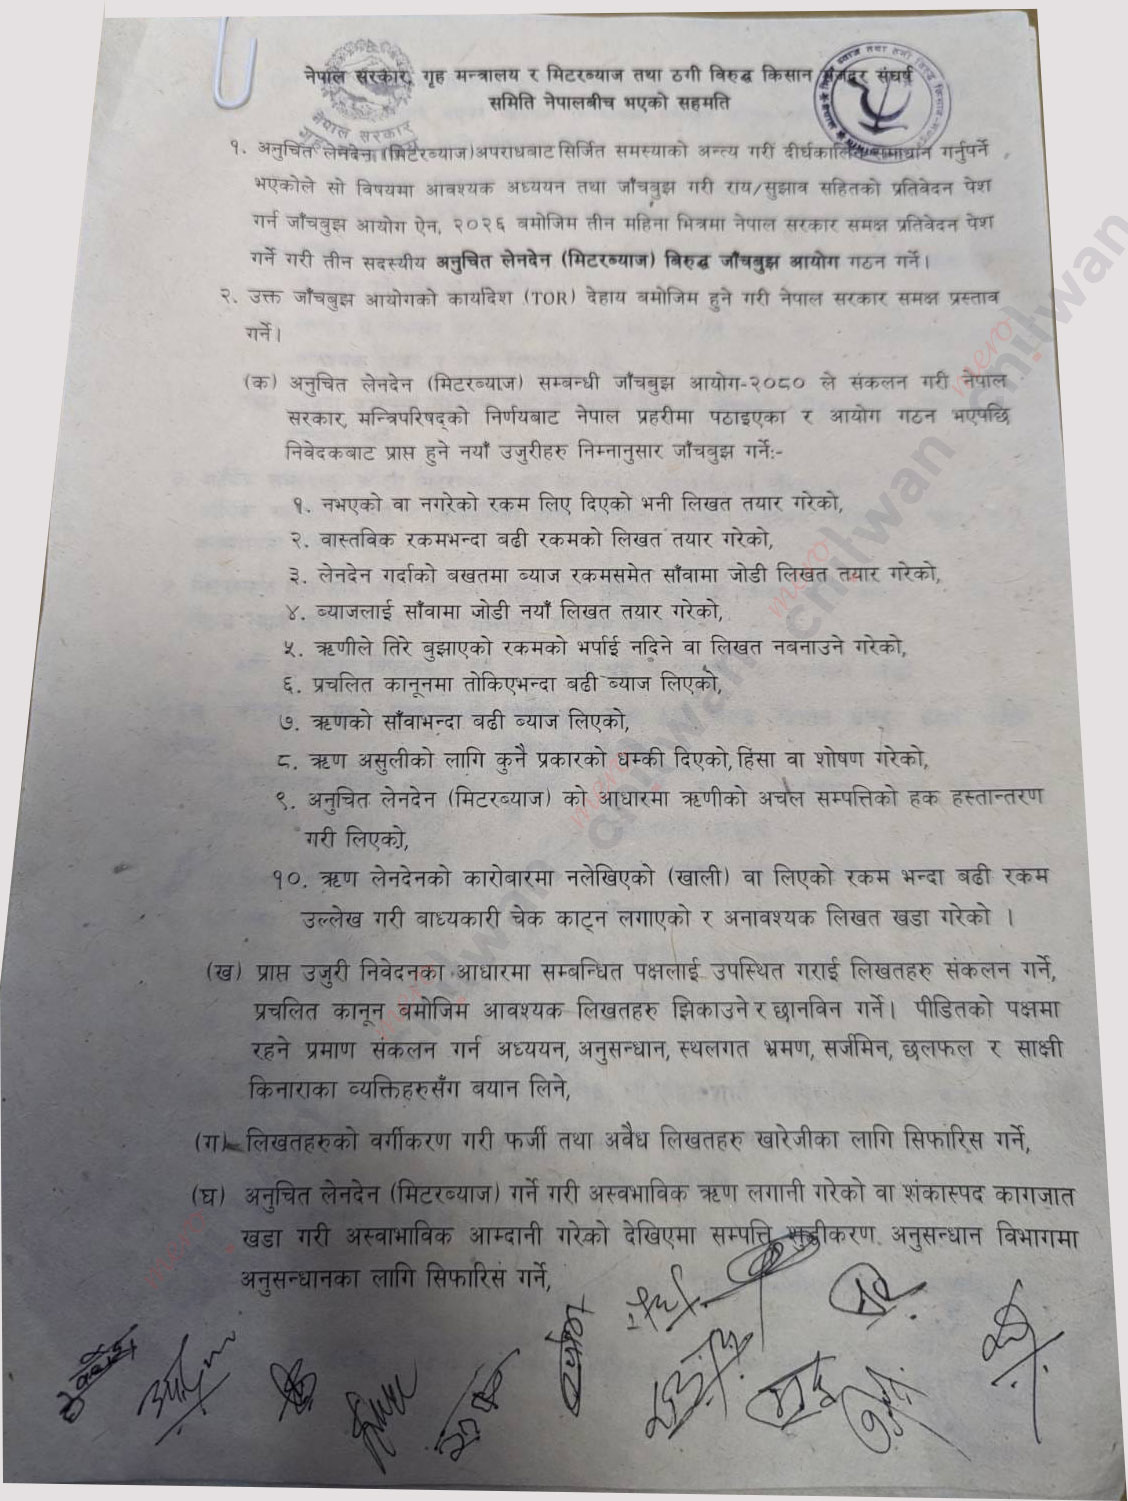 नेपाल सरकार, गृह मन्त्रालय र मिटरब्याज तथा ठगी विरुद्ध किसान मजदुर संघर्ष
समिति नेपालबीच भएको सहमति
नेपाल सरकार
१. अनुचित लेनदेन (मिटरब्याज) अपराधबाट सिर्जित समस्याको अन्त्य गरी दीर्घकालिन समाधान गर्नुपर्ने
भएकोले सो विषयमा आवश्यक अध्ययन तथा जाँचबुझ गरी राय/सुझाव सहितको प्रतिवेदन पेश
गर्न जाँचबुझ आयोग ऐन, २०२६ बमोजिम तीन महिना भित्रमा नेपाल सरकार समक्ष प्रतिवेदन पेश
गर्ने गरी तीन सदस्यीय अनुचित लेनदेन (मिटरब्याज) विरुद्ध जाँचबुझ आयोग गठन गर्ने।
२. उक्त जाँचबुझ आयोगको कार्यादेश (TOR) देहाय बमोजिम हुने गरी नेपाल सरकार समक्ष प्रस्ताव
गर्ने।
(क) अनुचित लेनदेन (मिटरब्याज) सम्बन्धी जाँचबुझ आयोग-२०८० ले संकलन गरी नेपाल
सरकार, मन्त्रिपरिषद्को निर्णयबाट नेपाल प्रहरीमा पठाइएका र आयोग गठन भएपछि
निवेदकबाट प्राप्त हुने नयाँ उजुरीहरु निम्नानुसार जाँचबुझ गर्ने:-
१. नभएको वा नगरेको रकम लिए दिएको भनी लिखत तयार गरेको,
२. वास्तविक रकमभन्दा बढी रकमको लिखत तयार गरेको,
३. लेनदेन गर्दाको बखतमा ब्याज रकमसमेत साँवामा जोडी लिखत तयार गरेको,
४. ब्याजलाई साँवामा जोडी नयाँ लिखत तयार गरेको,
५. ऋणीले तिरे बुझाएको रकमको भर्पाई नदिने वा लिखत नबनाउने गरेको,
६. प्रचलित कानूनमा तोकिएभन्दा बढी ब्याज लिएको,
७. ऋणको साँवाभन्दा बढी ब्याज लिएको,
८. ऋण असुलीको लागि कुनै प्रकारको धम्की दिएको, हिंसा वा शोषण गरेको,
९. अनुचित लेनदेन (मिटरब्याज) को आधारमा ऋणीको अचल सम्पत्तिको हक हस्तान्तरण
गरी लिएको,
१०. ऋण लेनदेनको कारोबारमा नलेखिएको (खाली) वा लिएको रकम भन्दा बढी रकम
उल्लेख गरी बाध्यकारी चेक काट्न लगाएको र अनावश्यक लिखत खडा गरेको ।
(ख) प्राप्त उजुरी निवेदनका आधारमा सम्बन्धित पक्षलाई उपस्थित गराई लिखतहरु संकलन गर्ने,
प्रचलित कानून बमोजिम आवश्यक लिखतहरु झिकाउने र छानविन गर्ने। पीडितको पक्षमा
रहने प्रमाण संकलन गर्न अध्ययन, अनुसन्धान, स्थलगत भ्रमण, सर्जमिन, छलफल र साक्षी
किनाराका व्यक्तिहरुसँग बयान लिने,
(ग) लिखतहरुको वर्गीकरण गरी फर्जी तथा अवैध लिखतहरु खारेजीका लागि सिफारिस गर्ने,
(घ) अनुचित लेनदेन (मिटरब्याज) गर्ने गरी अस्वभाविक ऋण लगानी गरेको वा शंकास्पद कागजात
खडा गरी अस्वाभाविक आम्दानी गरेको देखिएमा सम्पत्ति शुद्धीकरण अनुसन्धान विभागमा
अनुसन्धानका लागि सिफारिस गर्ने,
mero chitwan
mero chitwan
mero chitwan
mero chitwan
mero